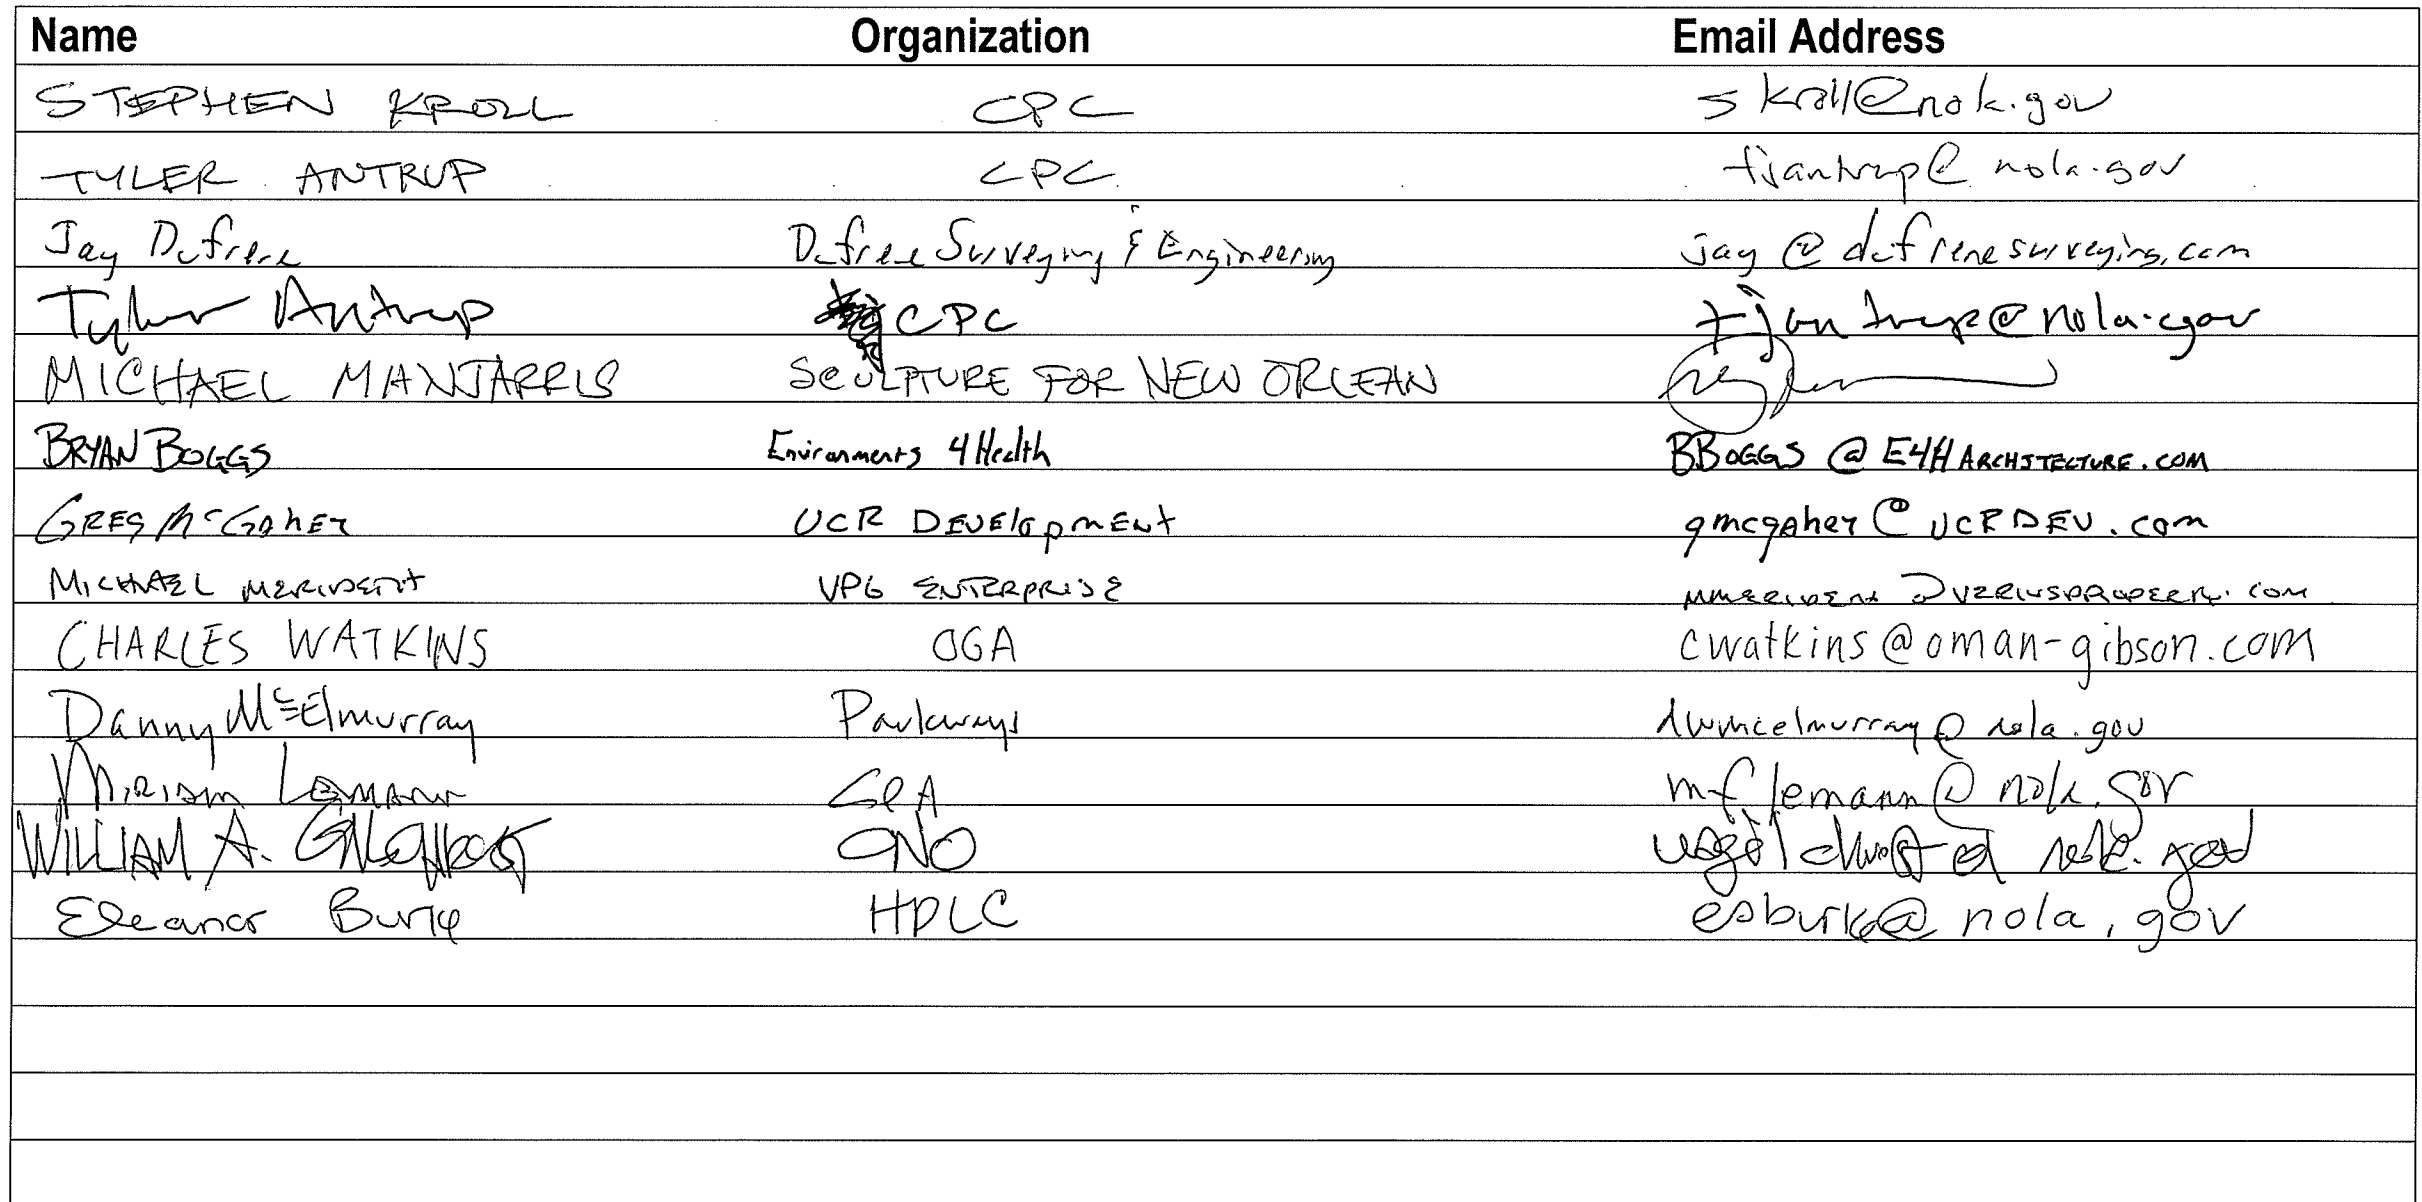 Name Organization Email Address
STEPHEN KROLL CPC skroll@nola.gov
TYLER ANTRUP CPC tjantrup@nola.gov
Jay Dufrene Dufrene Surveying & Engineering jay@dufrenesurveying.com
Tyler Antrup CPC tjantrup@nola.gov
MICHAEL MANJARRIS SCULPTURE FOR NEW ORLEAN
BRYAN BOGGS Environments 4 Health B.BOGGS @ E4HARCHITECTURE.COM
GREG McGAHEY UCR DEVElopmENt gmcgahey@UCRDEV.com
MICHAEL VPG ENTERPRISE
CHARLES WATKINS OGA cwatkins@oman-gibson.com
Danny McElmurray Parkways dwmcelmurray@nola.gov
MIRIAM LEMANN mflemann@nola.gov
WILLIAM A. GILCHRIST CNO wagilchrist@nola.gov
Eleanor Burke HDLC esburke@nola.gov